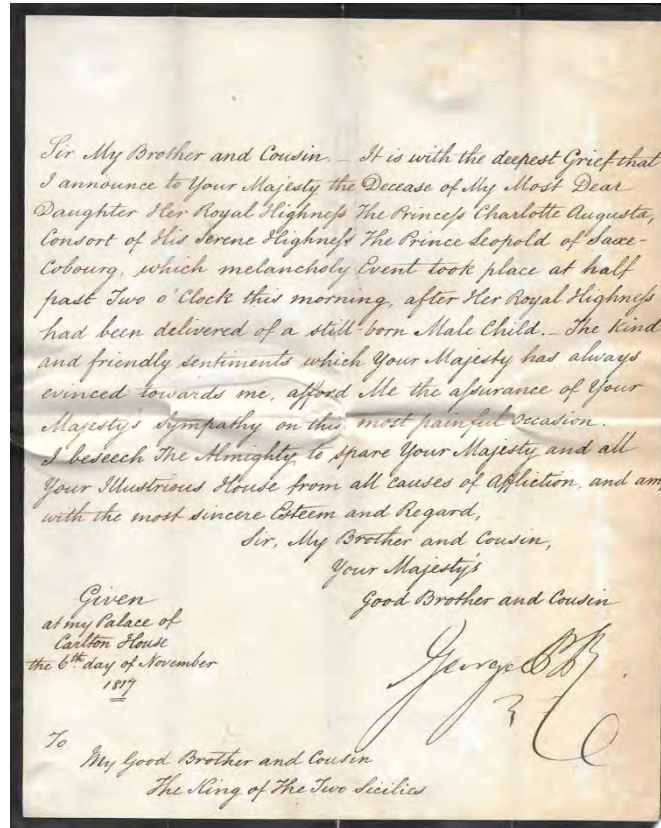 Sir My Brother and Cousin. _ It is with the deepest Grief that
I announce to Your Majesty the Decease of My Most Dear
Daughter Her Royal Highneſs The Princeſs Charlotte Augusta,
Consort of His Serene Highneſs The Prince Leopold of Saxe-
Cobourg, which melancholy Event took place at half
past Two o'Clock this morning, after Her Royal Highneſs
had been delivered of a still-born Male Child. _ The kind
and friendly sentiments which Your Majesty has always
evinced towards me, afford Me the aſsurance of Your
Majesty's Sympathy on this most painful occasion.
I beseech The Almighty to spare Your Majesty and all
Your Illustrious House from all causes of Affliction, and am
with the most sincere Esteem and Regard,
Sir, My Brother and Cousin,
Your Majesty's
Good Brother and Cousin
George P R
Given
at my Palace of
Carlton House
the 6th day of November
1817
To
My Good Brother and Cousin
The King of The Two Sicilies